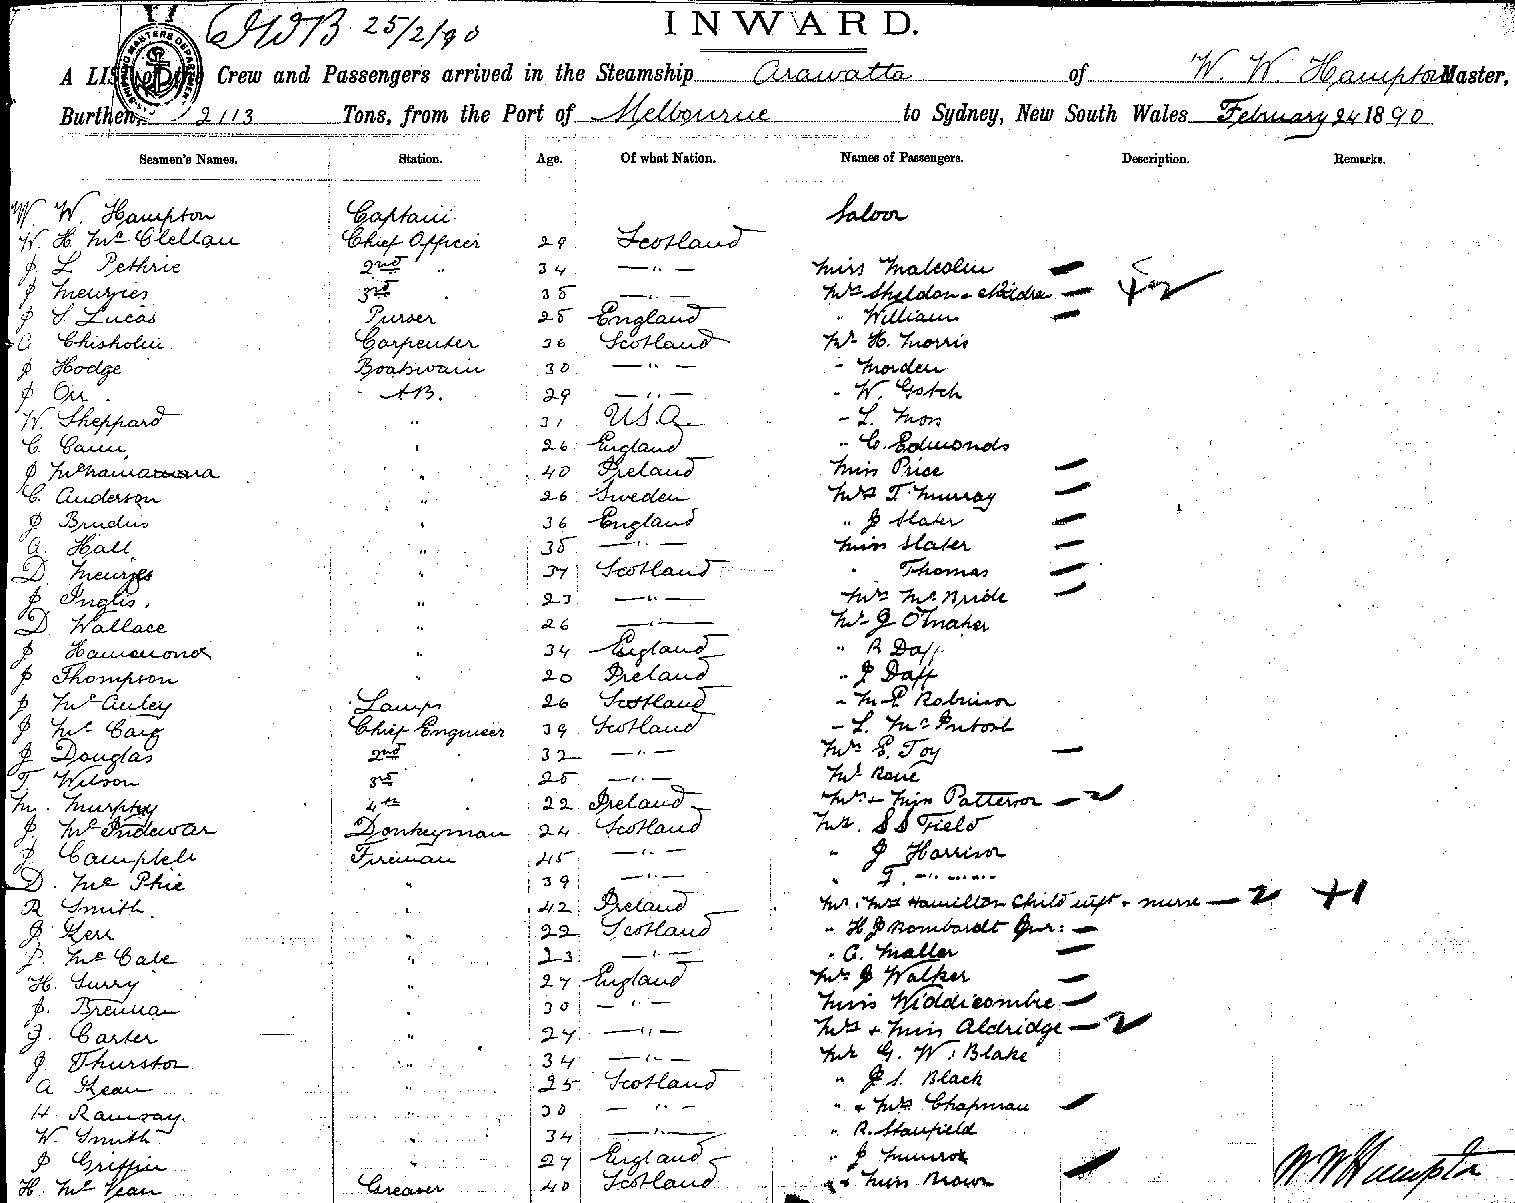 JWB 25/2/90
INWARD.
A LIST of the Crew and Passengers arrived in the Steamship Arawatta of W. W. Hampton Master,
Burthen, 2113 Tons, from the Port of Melbourne to Sydney, New South Wales February 24 1890
Seamen's Names. Station. Age. Of what Nation. Names of Passengers. Description. Remarks.
W. W. Hampton Captain Saloon
W. H. McClellan Chief Officer 29 Scotland
J L Pethrie 2nd " 34 —"— Miss Malcolm —
J Menzies 3rd 35 —"— Mrs Sheldon + children —
J S Lucas Purser 25 England " William —
A Chisholm Carpenter 36 Scotland Mr H. Morris
J Hodge Boatswain 30 —"— " Morden
J Orr AB. 29 —"— " W. Gotch
W. Sheppard " 31 U.S.A. " L. Moss
C. Cann " 26 England " C. Edmonds
J McNamara " 40 Ireland Miss Price —
C. Anderson " 26 Sweden Mrs T. Murray —
J " 36 England " J Slater —
A. Hall " 35 —"— Miss Slater —
D. Menzies " 37 Scotland " Thomas —
J Inglis " 23 —"— Mrs McBride —
D Wallace " 26 —"— Mr J
J Hammond " 34 England " R Daff
J Thompson " 20 Ireland " J Daff
J McAuley Lamps 26 Scotland " M. P. Robinson
J McCaig Chief Engineer 39 Scotland " L. McIntosh
J Douglas 2nd 32 —"— Mrs E. Toy —
T Wilson 3rd " 25 —"— Mr
M. Murphy 4th 22 Ireland Mrs + Miss Patterson — 2
J. McIndewar Donkeyman 24 Scotland Mr. S S Field
J Campbell Fireman 45 —"— " J Harrison
D. McPhie " 39 —"— " T. —"—
R Smith " 42 Ireland Mr + Mrs Hamilton Child inft + nurse — 2 +1
J Kerr " 22 Scotland " H J Rombardt Jnr: —
J. McCale " 23 —"— " C. Maller —
H. Surry " 27 England Mrs J Walker —
J. Brennan " 30 —"— Miss Widdicombe —
J. Carter " 27 —"— Mrs + Miss Aldridge — 2
J Thurston " 34 —"— Mr G. W. Blake
A Kean " 25 Scotland " J S. Black
H. Ramsay " 30 —"— " + Mrs Chapman —
W. Smith " 34 —"— " R. Stanfield
J Griffin " 27 England " J Munroe
H. McJean Greaser 40 Scotland " + Miss Brown —
W W Hampton